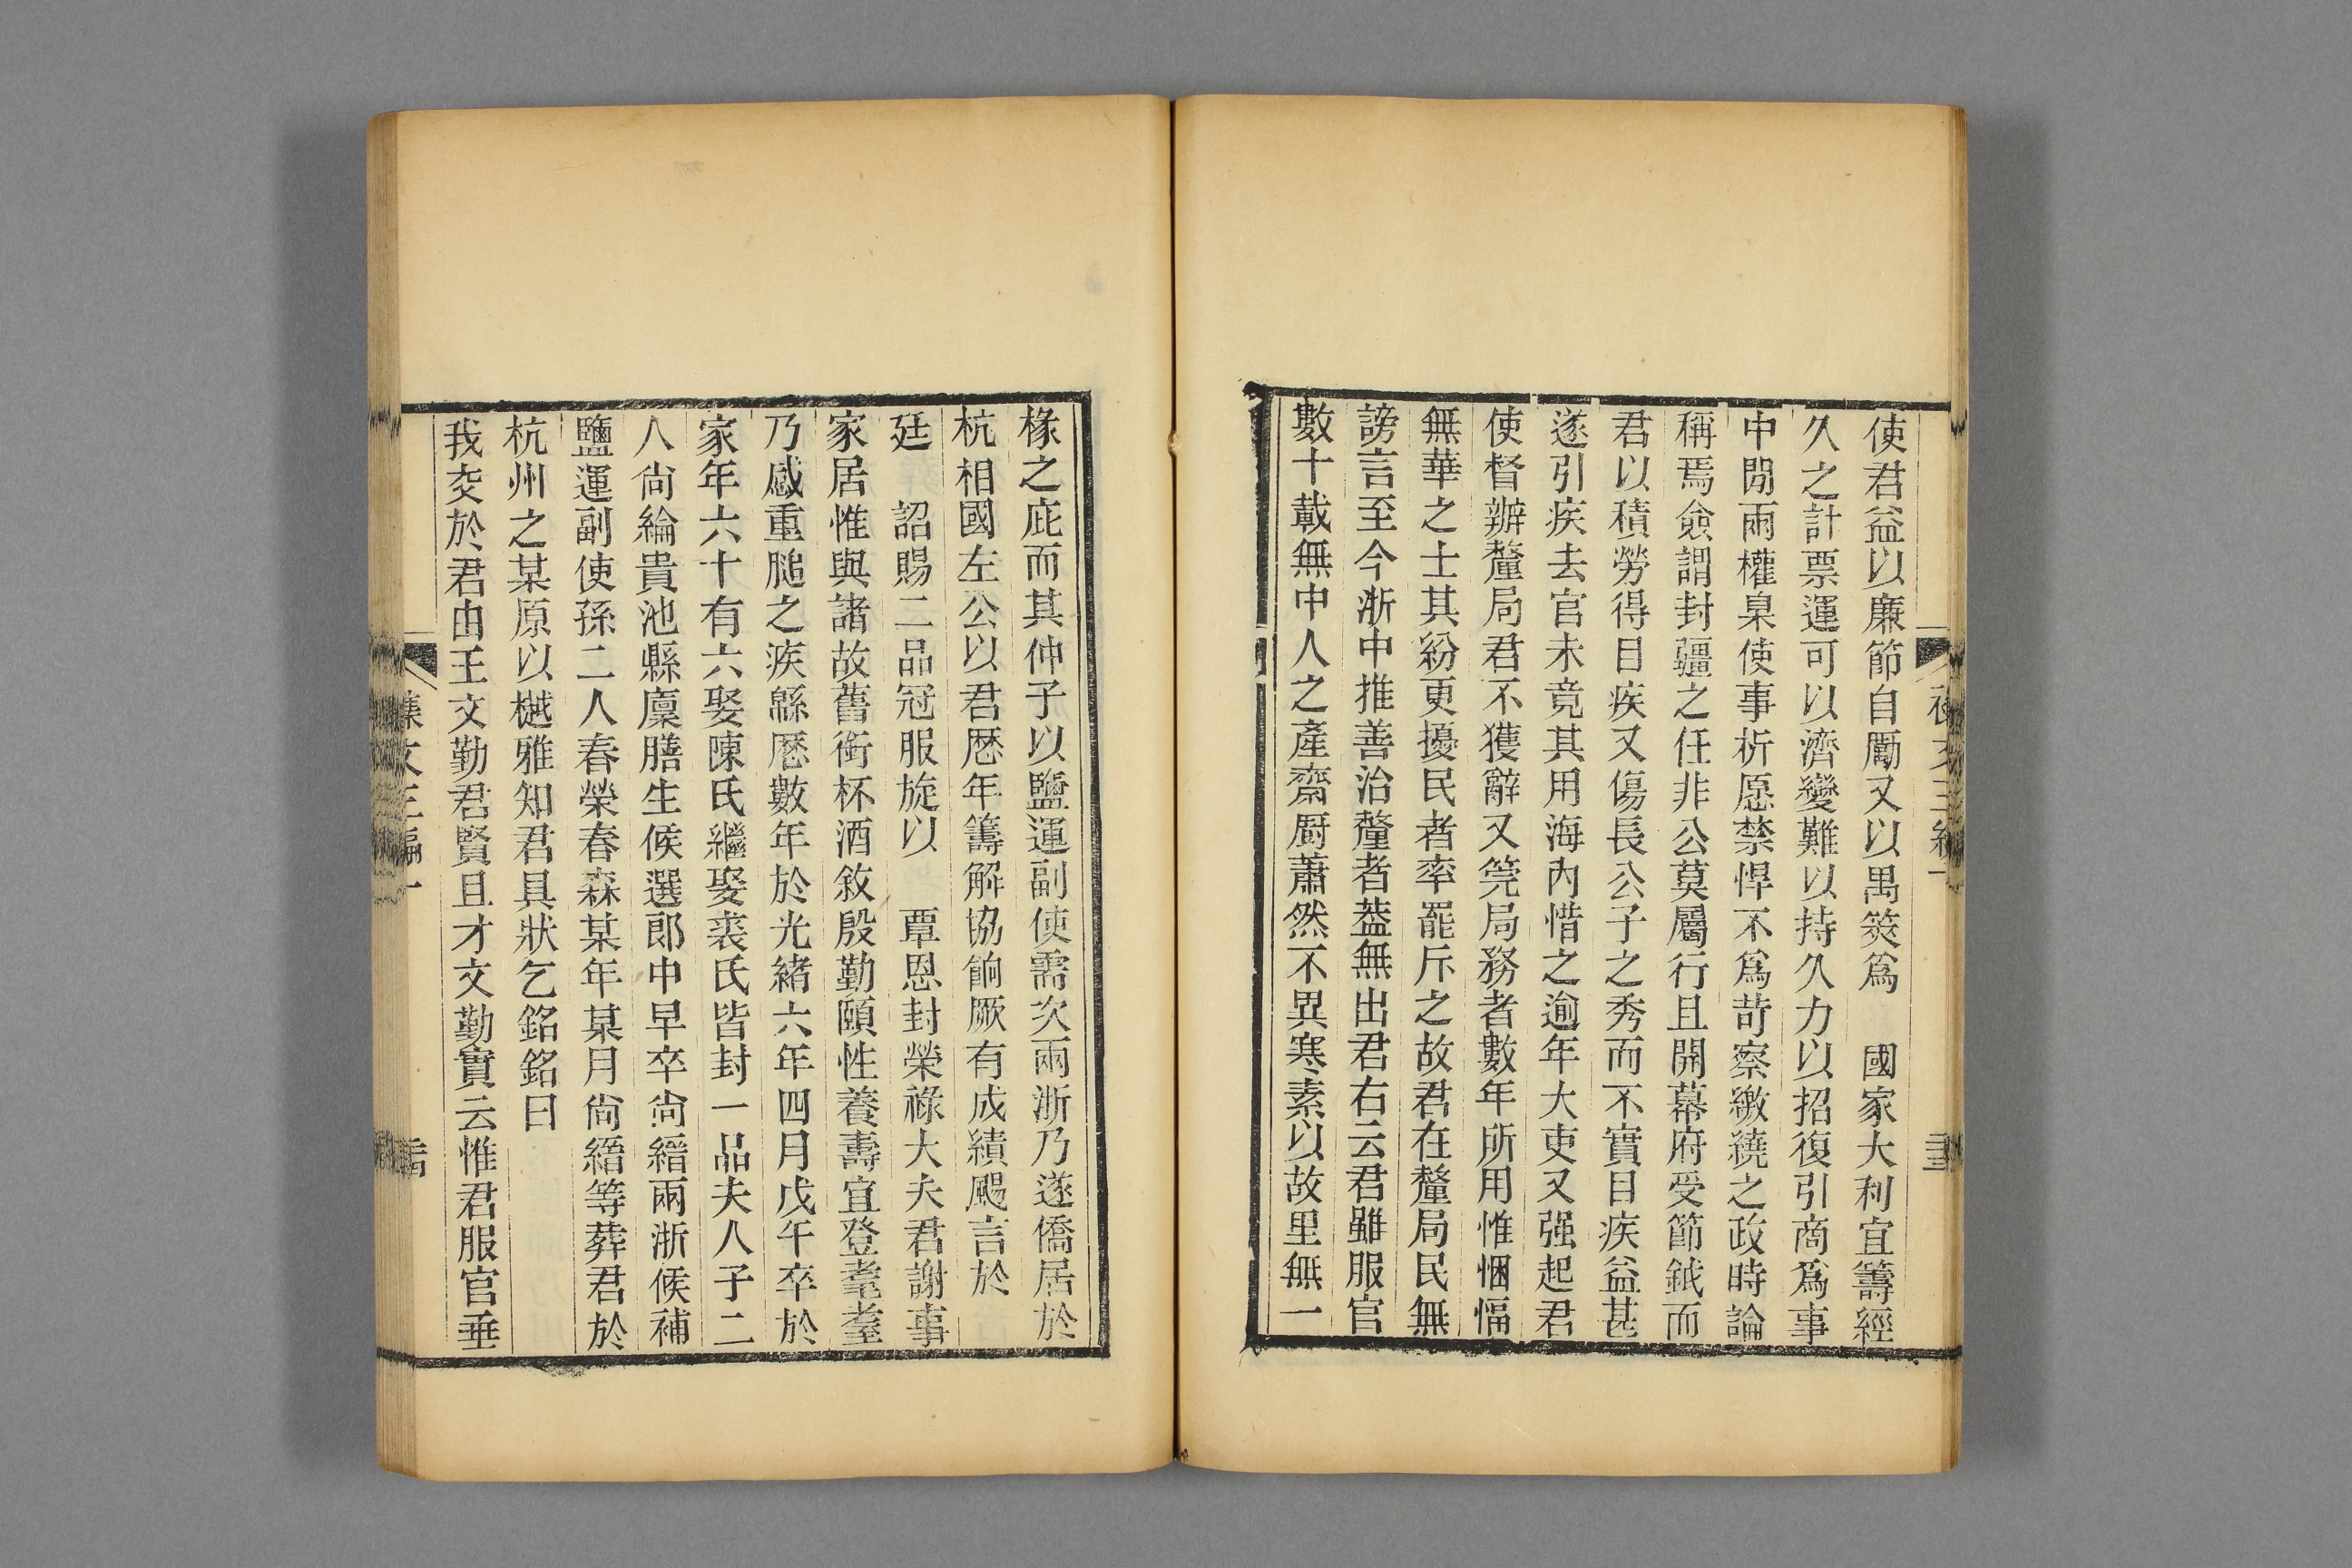 使君益以廉節自勵又以禺筴爲　國家大利宜籌經
久之計票運可以濟變難以持久力以招復引商爲事
中閒兩權臬使事祈愿禁悍不爲苛察繳繞之政時論
稱焉僉謂封疆之任非公莫屬行且開幕府受節鉞而
君以積勞得目疾又傷長公子之秀而不實目疾益甚
遂引疾去官未竟其用海內惜之逾年大吏又强起君
使督辦釐局君不獲辭又筦局務者數年所用惟悃愊
無華之士其紛更擾民者率罷斥之故君在釐局民無
謗言至今浙中推善治釐者葢無出君右云君雖服官
數十載無中人之產齋厨蕭然不異寒素以故里無一
椽之庇而其仲子以鹽運副使需次兩浙乃遂僑居於
杭相國左公以君厯年籌解協餉厥有成績颺言於
廷　詔賜二品冠服旋以　覃恩封榮祿大夫君謝事
家居惟與諸故舊銜杯酒敘殷勤頤性養壽宜登耄耋
乃感重膇之疾緜厯數年於光緒六年四月戊午卒於
家年六十有六娶陳氏繼娶裘氏皆封一品夫人子二
人尙綸貴池縣廩膳生候選郎中早卒尙縉兩浙候補
鹽運副使孫二人春榮春森某年某月尙縉等葬君於
杭州之某原以樾雅知君具狀乞銘銘曰
我交於君由王文勤君賢且才文勤實云惟君服官垂